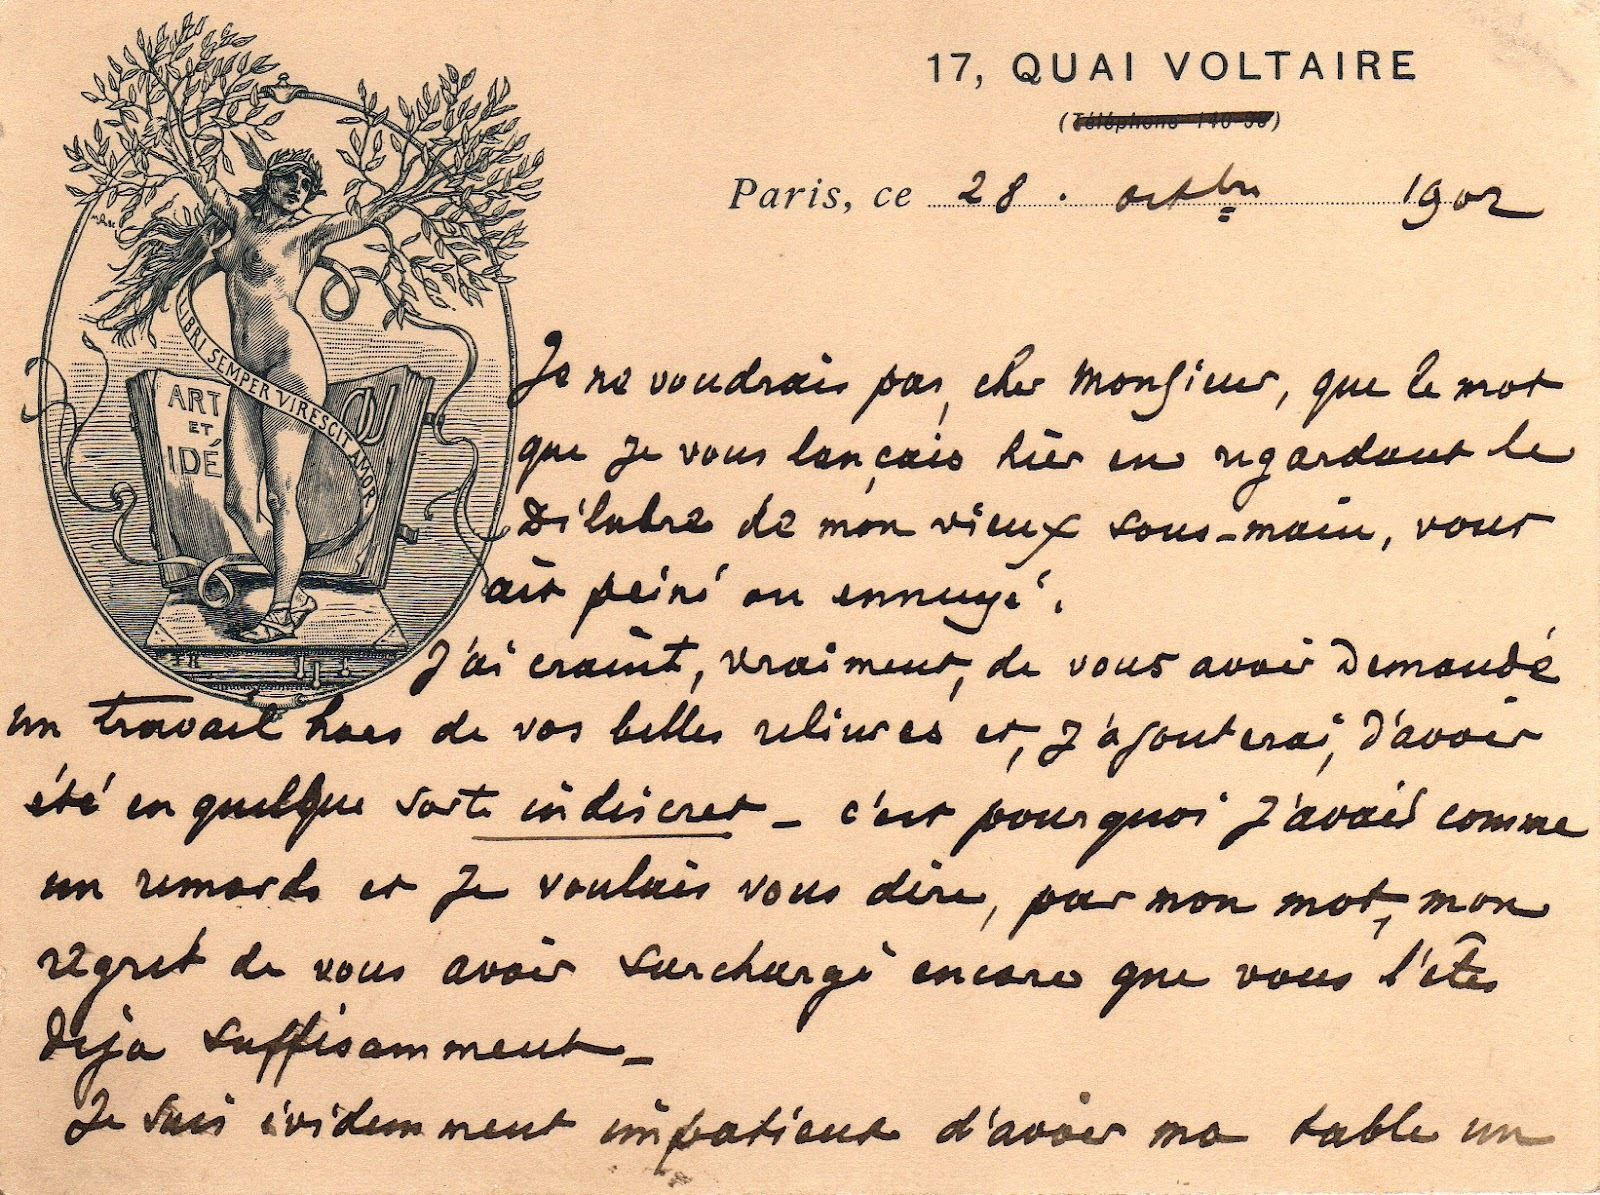 17, QUAI VOLTAIRE
(Téléphone 140-
Paris, ce 28. octbre 1902
LIBRI SEMPER VIRESCIT AMOR
ART
ET
IDÉ
Je ne voudrais pas, cher Monsieur, que le mot
que je vous lançais hier en regardant le
Délabre de mon vieux sous-main, vous
ait peiné ou ennuyé.
J'ai craint, vraiment, de vous avoir Demandé
un travail hors de vos belles reliures et, j'ajouterai, d'avoir
été en quelque sorte indiscret – c'est pourquoi j'avais comme
un remords et je voulais vous dire, par mon mot, mon
regret de vous avoir surchargé encore que vous l'êtes
déjà suffisamment –
Je suis évidemment impatient d'avoir ma table un